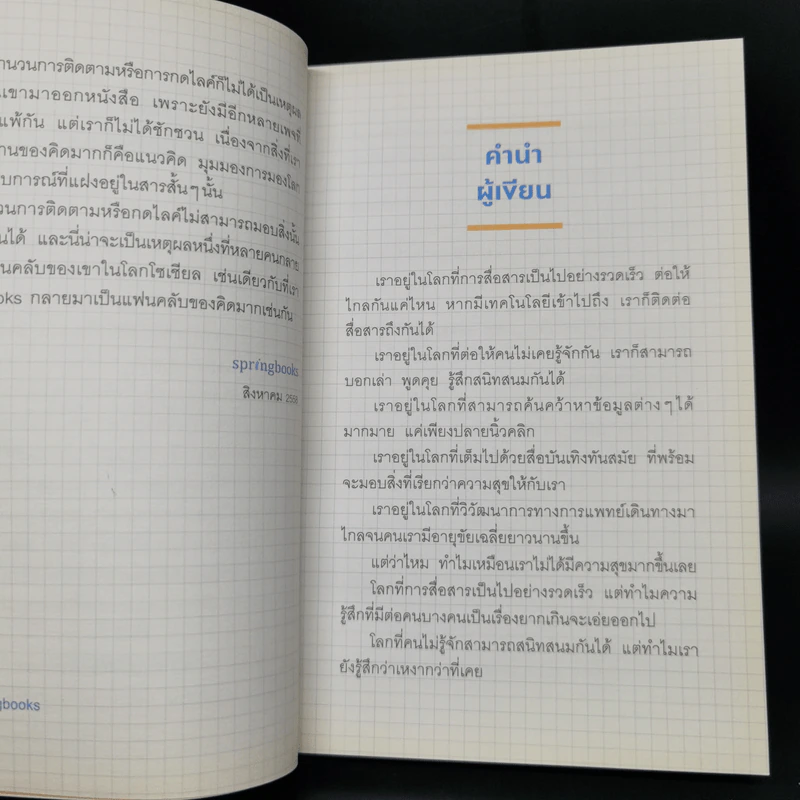 นวนการติดตามหรือการกดไลค์ก็ไม่ได้เป็นเหตุผล
เขามาออกหนังสือ เพราะยังมีอีกหลายเพจที่
แพ้กัน แต่เราก็ไม่ได้ชักชวน เนื่องจากสิ่งที่เรา
านของคิดมากก็คือแนวคิด มุมมองการมองโลก
บการณ์ที่แฝงอยู่ในสารสั้นๆนั้น
วนการติดตามหรือกดไลค์ไม่สามารถมอบสิ่งนั้น
นได้ และนี่น่าจะเป็นเหตุผลหนึ่งที่หลายคนกลาย
นคลับของเขาในโลกโซเชียล เช่นเดียวกับที่เรา
ooks กลายมาเป็นแฟนคลับของคิดมากเช่นกัน
springbooks
สิงหาคม
gbooks
คำนำ
ผู้เขียน
เราอยู่ในโลกที่การสื่อสารเป็นไปอย่างรวดเร็ว ต่อให้
ไกลกันแค่ไหน หากมีเทคโนโลยีเข้าไปถึง เราก็ติดต่อ
สื่อสารถึงกันได้
เราอยู่ในโลกที่ต่อให้คนไม่เคยรู้จักกัน เราก็สามารถ
บอกเล่า พูดคุย รู้สึกสนิทสนมกันได้
เราอยู่ในโลกที่สามารถค้นคว้าหาข้อมูลต่างๆได้
มากมาย แค่เพียงปลายนิ้วคลิก
เราอยู่ในโลกที่เต็มไปด้วยสื่อบันเทิงทันสมัย ที่พร้อม
จะมอบสิ่งที่เรียกว่าความสุขให้กับเรา
เราอยู่ในโลกที่วิวัฒนาการทางการแพทย์เดินทางมา
ไกลจนคนเรามีอายุขัยเฉลี่ยยาวนานขึ้น
แต่ว่าไหม ทำไมเหมือนเราไม่ได้มีความสุขมากขึ้นเลย
โลกที่การสื่อสารเป็นไปอย่างรวดเร็ว แต่ทำไมความ
รู้สึกที่มีต่อคนบางคนเป็นเรื่องยากเกินจะเอ่ยออกไป
โลกที่คนไม่รู้จักสามารถสนิทสนมกันได้ แต่ทำไมเรา
ยังรู้สึกว่าเหงากว่าที่เคย